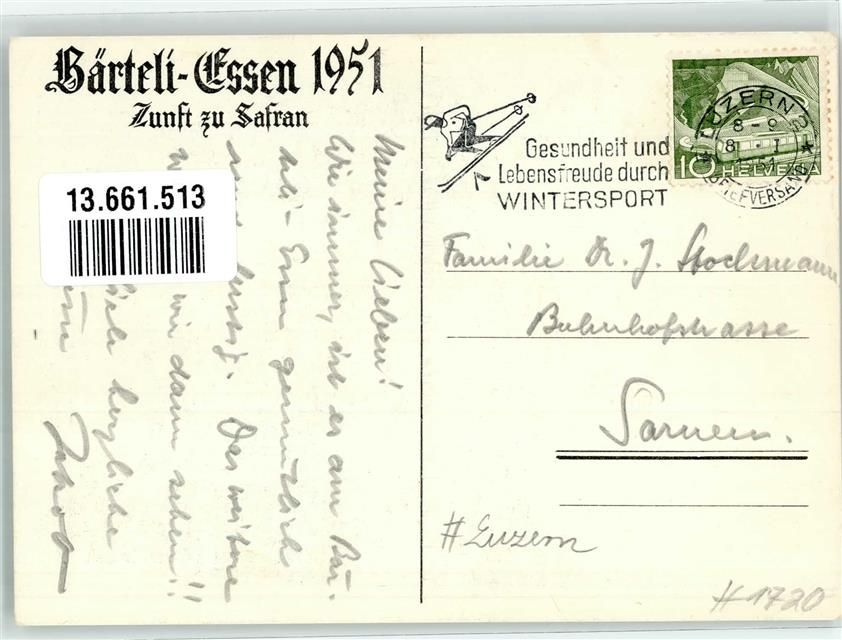 Bärteli-Essen 1951
Zunft zu Safran
13.661.513
Meine Lieben!
Wie immer, ist es am Bär-
teli-Essen gemütlich
und lustig. Das weitere
wir dann sehen!!
herzliche
Jakob
Gesundheit und
Lebensfreude durch
WINTERSPORT
LUZERN 2
8-9
8. I
1951
BRIEFVERSAND
10 HELVETIA
Familie Dr. J. Stockmann
Bahnhofstrasse
Sarnen.
#Luzern
#1720